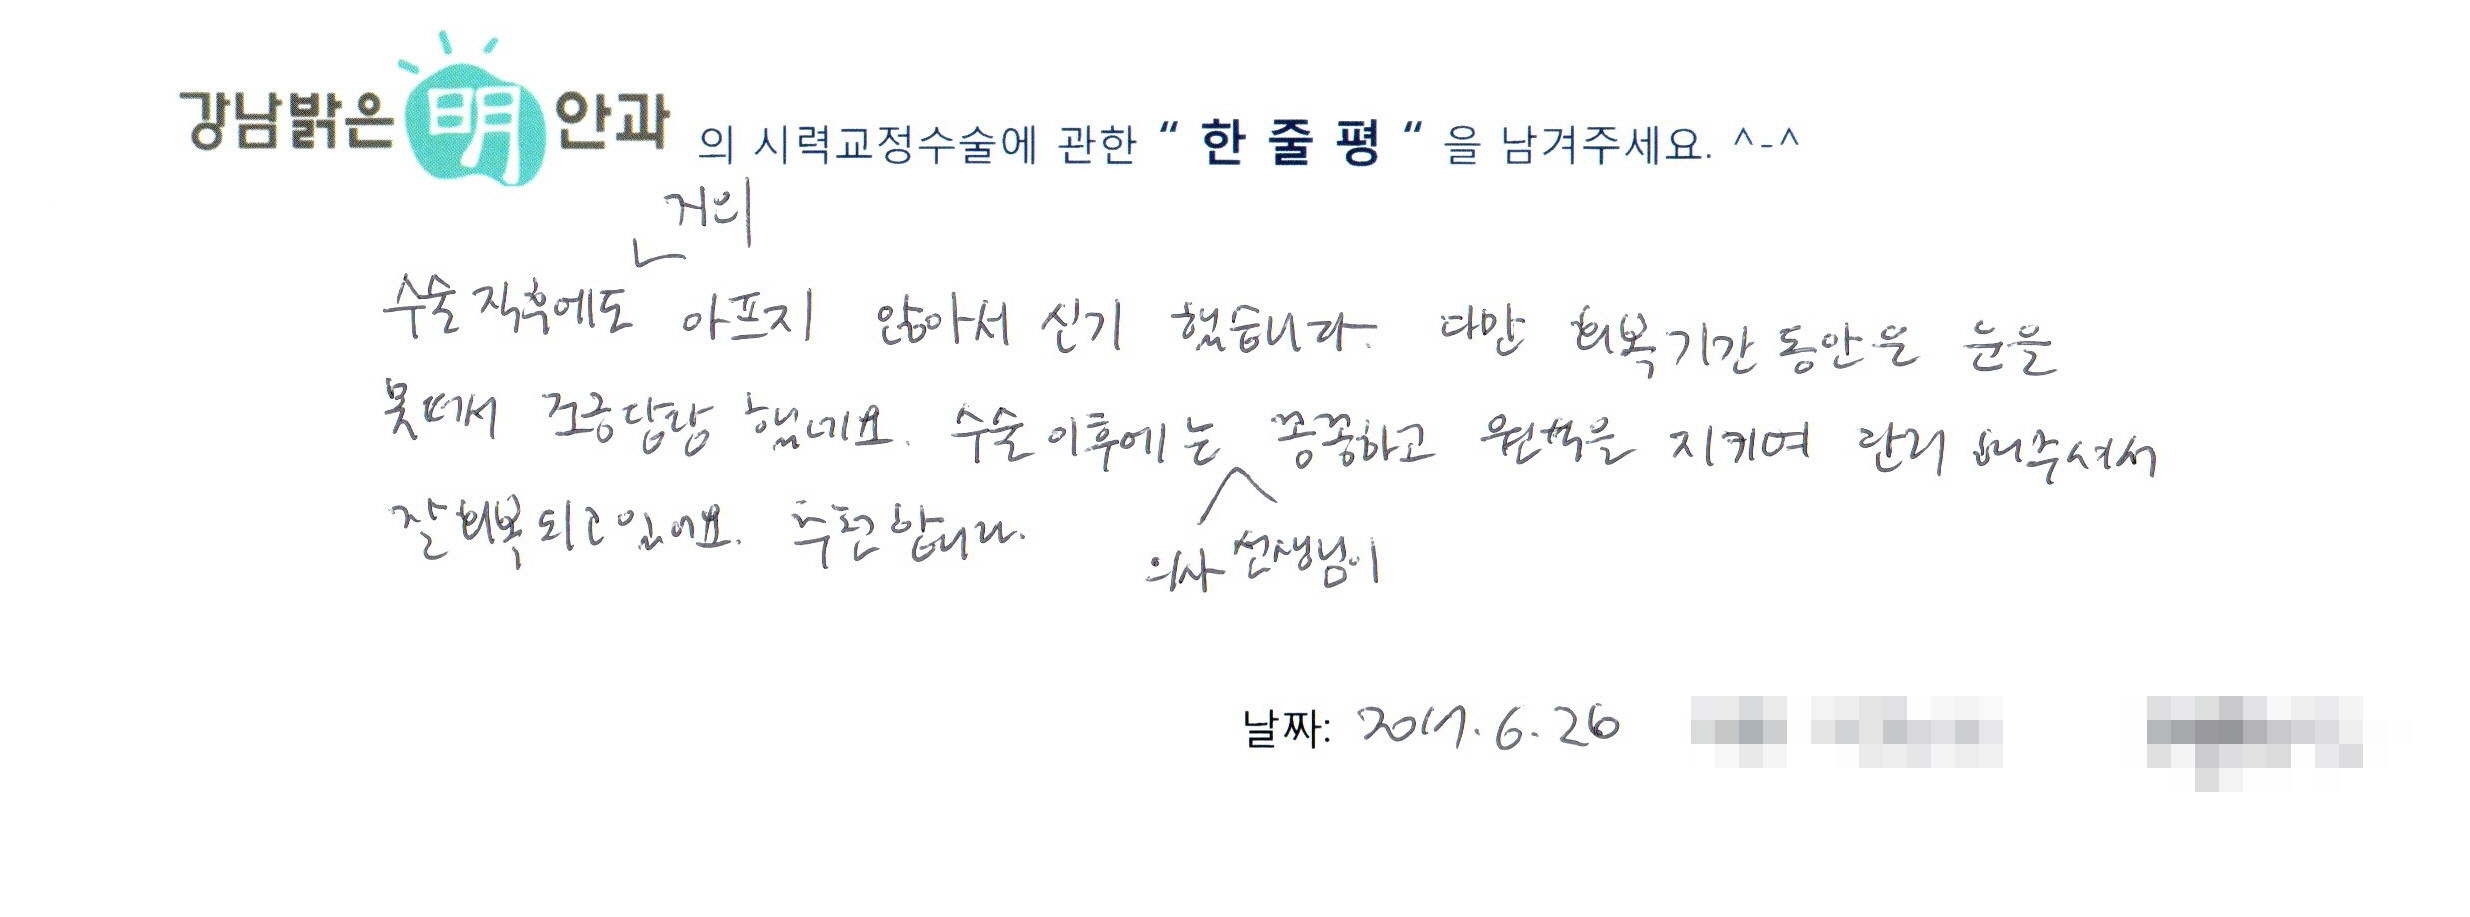 강남밝은 明 안과 의 시력교정수술에 관한 “ 한 줄 평 “ 을 남겨주세요. ^-^
거의
수술 직후에도 아프지 않아서 신기 했습니다. 다만 회복기간 동안은 눈을
못떠서 조금답답 했네요. 수술 이후에는 꽁꽁하고 원칙을 지키며 관리 해주셔서
잘회복되고있어요. 추천합니다.
의사 선생님이
날짜: 2017. 6. 26